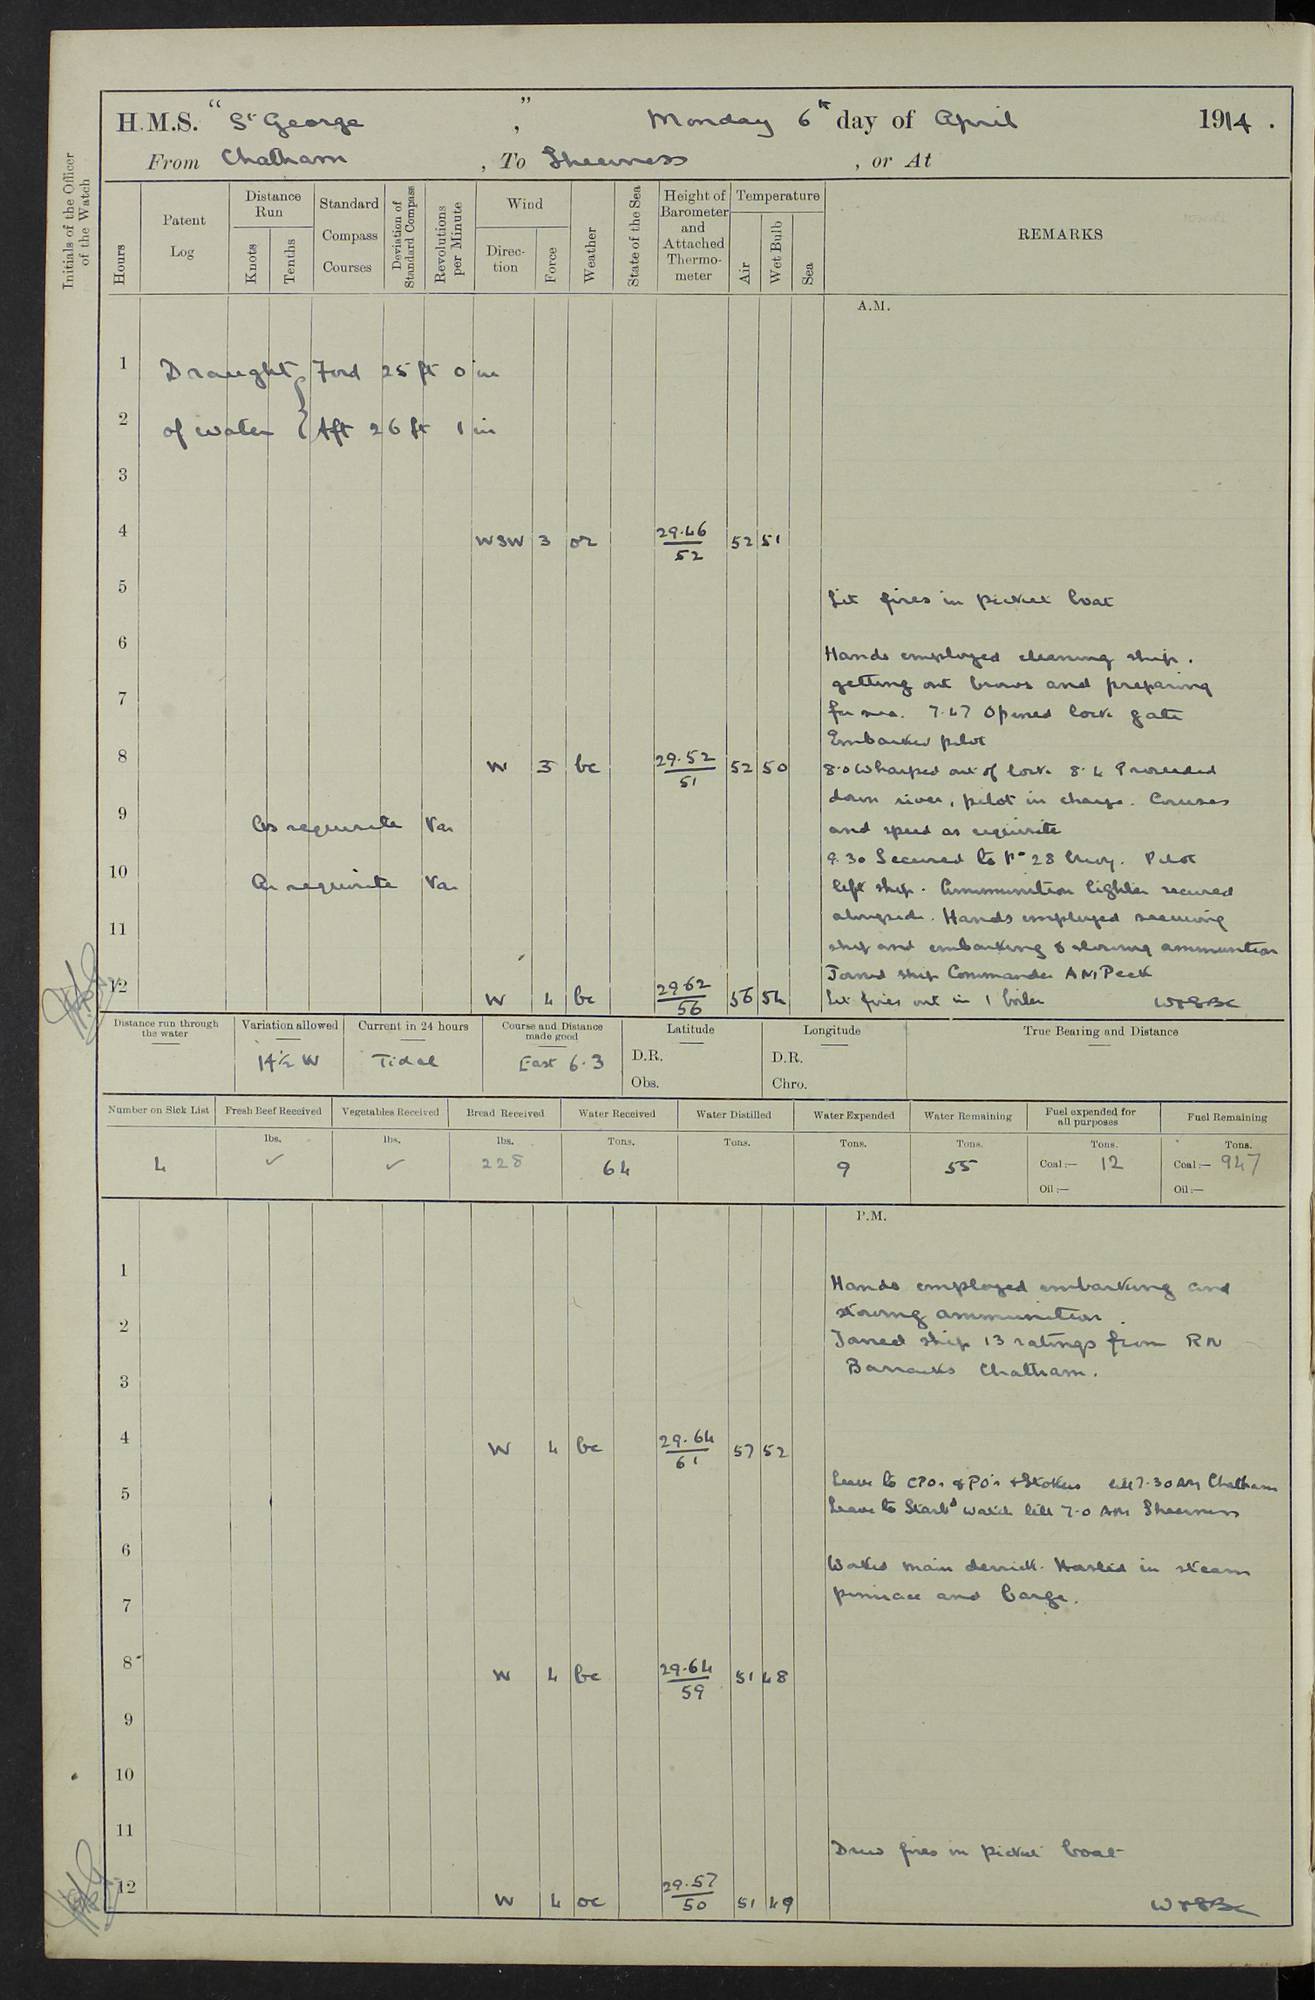 H.M.S. "St George", Monday 6th day of April 1914.
From Chatham, To Sheerness, or At
Initials of the Officer of the Watch
Hours
Patent Log
Distance Run
Knots
Tenths
Standard Compass Courses
Deviation of Standard Compass
Revolutions per Minute
Wind
Direction
Force
Weather
State of the Sea
Height of Barometer and Attached Thermometer
Temperature
Air
Wet Bulb
Sea
REMARKS
A.M.
1 Draught Ford 25 ft 0 in
2 of water Aft 26 ft 1 in
3
4 WSW 3 or 29.46 52 52 51
5 Lit fires in picket boat
6 Hands employed cleaning ship.
getting out brows and preparing
7 for sea. 7.47 Opened lock gate
Embarked pilot
8 W 3 bc 29.52 51 52 50 8.0 Wharped out of lock 8.4 Proceeded
down river, pilot in charge. Courses
9 As requisite Var and speed as requisite
9.30 Secured to No 28 buoy. Pilot
10 As requisite Var left ship. Ammunition lighter secured
alongside. Hands employed securing
11 ship and embarking & stowing ammunition
Joined ship Commander A N Peek
12 W 4 bc 29.62 56 56 54 Let fires out in 1 boiler
Distance run through the water
Variation allowed 14½ W
Current in 24 hours Tidal
Course and Distance made good East 6.3
Latitude
D.R.
Obs.
Longitude
D.R.
Chro.
True Bearing and Distance
Number on Sick List 4
Fresh Beef Received lbs. ✓
Vegetables Received lbs. ✓
Bread Received lbs. 228
Water Received Tons. 64
Water Distilled Tons.
Water Expended Tons. 9
Water Remaining Tons. 55
Fuel expended for all purposes Tons. Coal:— 12 Oil:—
Fuel Remaining Tons. Coal:— 947 Oil:—
P.M.
1 Hands employed embarking and
stowing ammunition.
2 Joined ship 13 ratings from RN
3 Barracks Chatham.
4 W 4 bc 29.64 61 57 52
Leave to CPOs & PO's & Stokers till 7.30 AM Chatham
5 Leave to Starbd watch till 7.0 AM Sheerness
6 Worked main derrick. Hoisted in steam
7 pinnace and barge.
8 W 4 bc 29.64 59 51 48
9
10
11 Drew fires in picket boat
12 W 4 oc 29.57 50 51 49